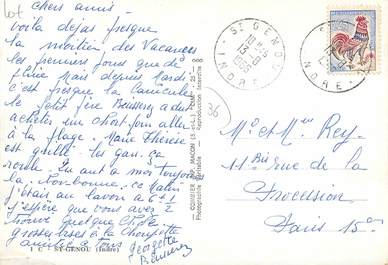 chers amis.
voila déjas presque
la moitier des Vacances
les premiers jours que de
pluie mais depuis Mardi
c'est presque la Canicule
le petit père Busserez a dut
acheter un short pour aller
à la plage. Marie Thérèse
est grillé les gars ça
roule. J'en ai à mer toujours
la bonbonne. Ce matin
j'étais au lavoir à 6h1
j'espère que vous avez
trouvé quelque chose
grosses bises à la Choupette
amitié a tous
Georgette
1 C ST-GENOU (Indre)
COMBIER IMP. MACON (S.-et-L.)
Photographie Véritable - Reproduction Interdite
ST GENOU
INDRE
13-8
1965
36
0,25
Mr et Mme Rey.
11 Bis rue de la
Procession
Paris 15e